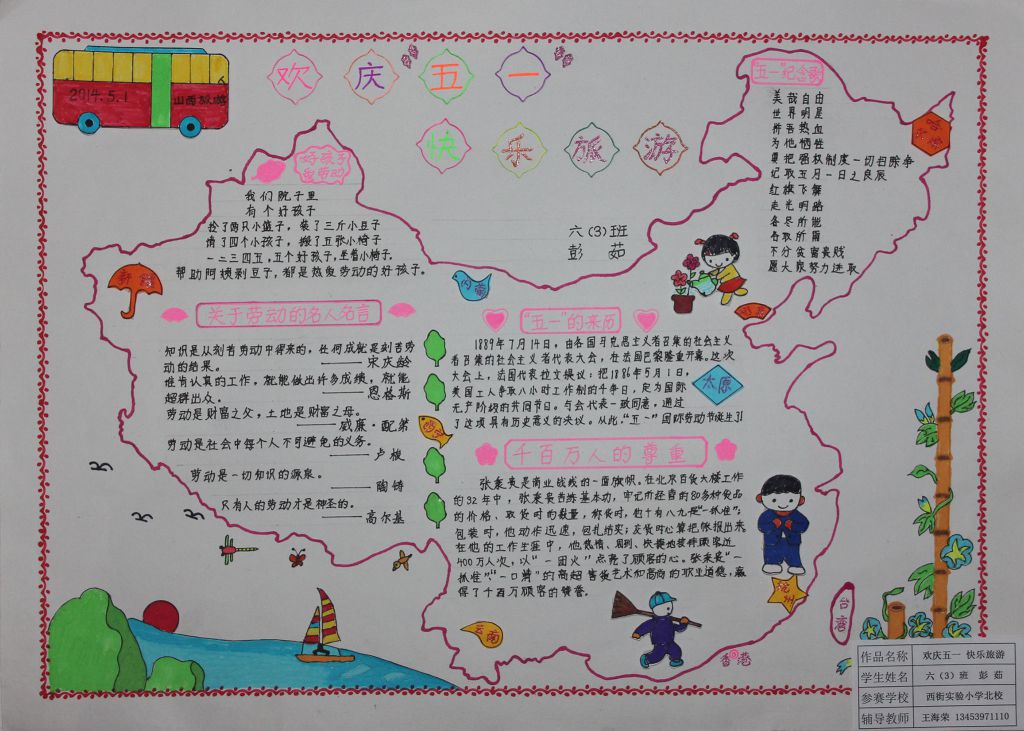 欢庆五一
快乐旅游
2014.5.1
山西旅游
六（3）班
彭 茹
好孩子
爱劳动
我们院子里
有个好孩子
捡了两只小篮子，装了三斤小豆子
请了四个小孩子，搬了五张小椅子
一二三四五，五个好孩子，坐着小椅子.
帮助阿姨剥豆子，都是热爱劳动的好孩子。
"五一"纪念歌
美哉自由
世界明星
拼吾热血
为他牺牲
要把强权制度一切扫除净
记取五月一日之良辰
红旗飞舞
走光明路
各尽所能
各取所需
不分贫富贵贱
愿大众努力进取
新疆
内蒙
太原
云南
台湾
香港
关于劳动的名人名言
知识是从刻苦劳动中得来的，任何成就是刻苦劳
动的结果。
——宋庆龄
谁肯认真的工作，就能做出许多成绩，就能
超群出众。
——恩格斯
劳动是财富之父，土地是财富之母。
——威廉·配第
劳动是社会中每个人不可避免的义务。
——卢梭
劳动是一切知识的源泉。
——陶铸
只有人的劳动才是神圣的。
——高尔基
"五一"的来历
1889年7月14日，由各国马克思主义者召集的社会主义
者召集的社会主义者代表大会，在法国巴黎隆重开幕。这次
大会上，法国代表拉文提议：把1886年5月1日，
美国工人争取八小时工作制的斗争日，定为国际
无产阶级的共同节日。与会代表一致同意，通过
了这项具有历史意义的决议。从此，"五一"国际劳动节诞生了!
千百万人的尊重
张秉贵是商业战线的一面旗帜。在北京百货大楼工作
的32年中，张秉贵苦练基本功，牢记所经营的80多种食品
的价格、取货时的数量，称货时，他十有八九是"一抓准"；
包装时，他动作迅速，包扎结实；交货时心算把账报出来
在他的工作生涯中，他热情、周到、快捷地接待顾客近
400万人次，以"一团火"点亮了顾客的心。张秉贵"一
抓准""一口清"的高超售货艺术和高尚的职业道德，赢
得了千百万顾客的赞誉。
作品名称 欢庆五一 快乐旅游
学生姓名 六（3）班 彭 茹
参赛学校 西街实验小学北校
辅导教师 王海荣 13453971110